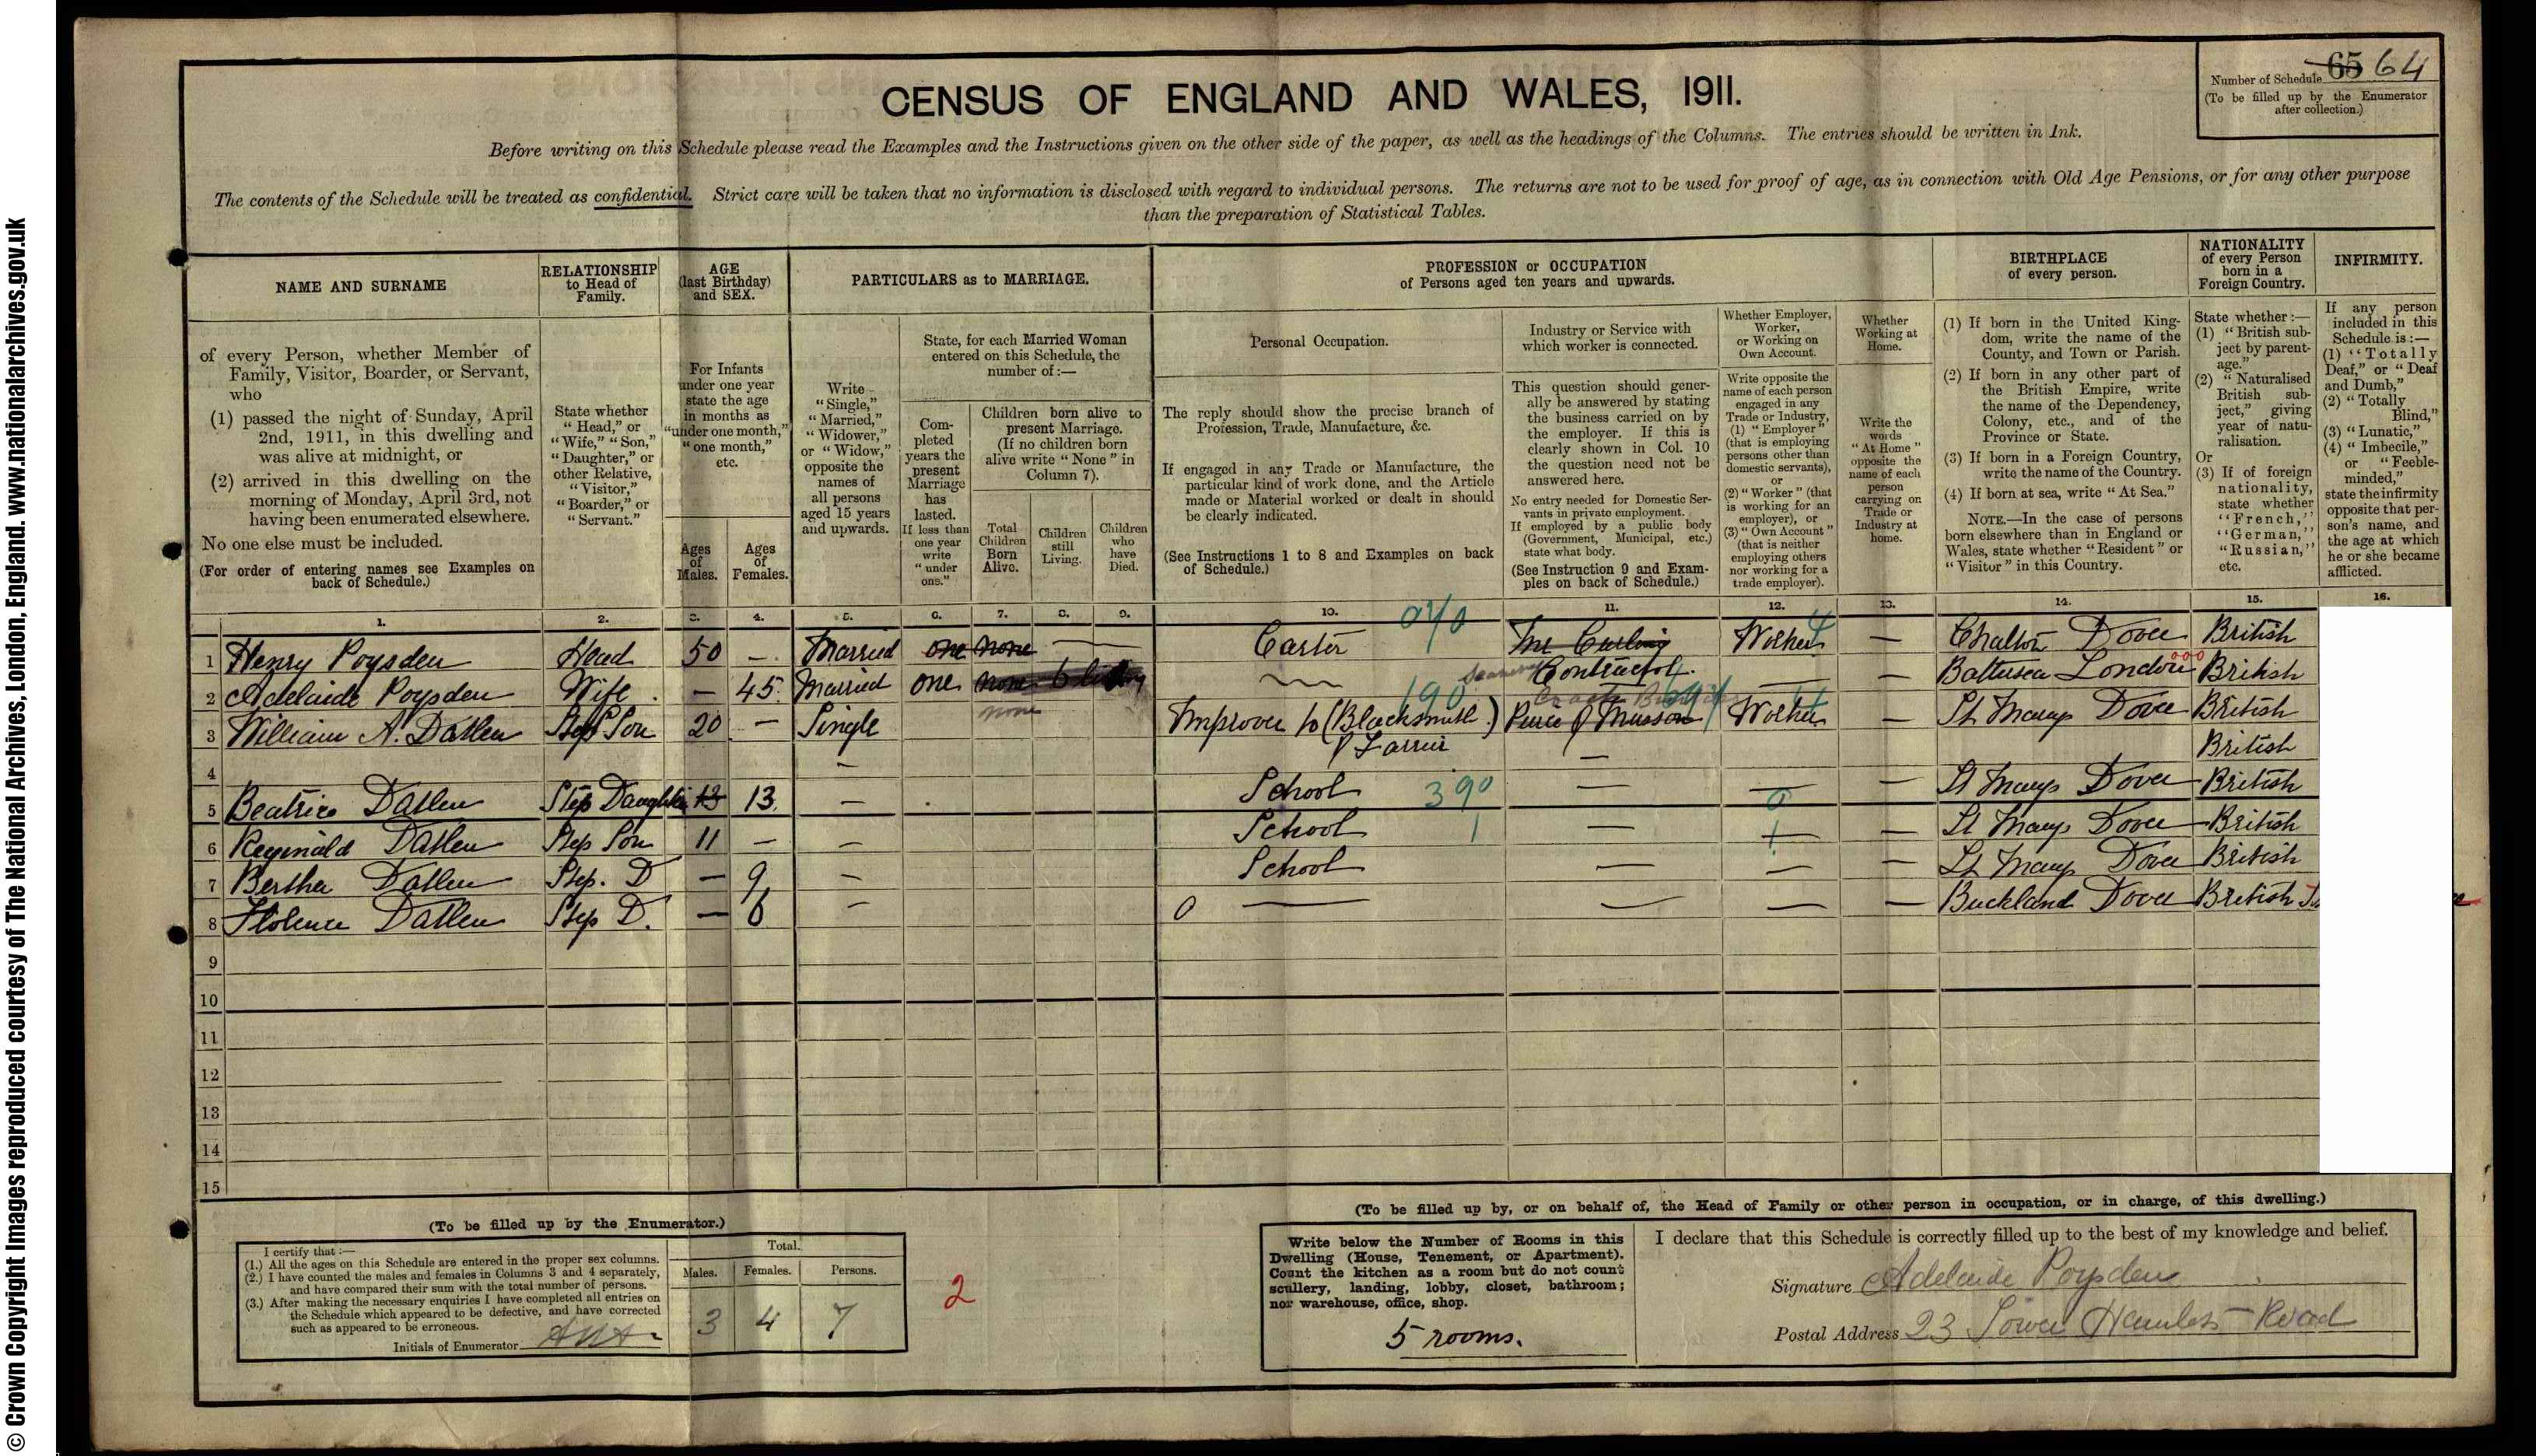 © Crown Copyright Images reproduced courtesy of The National Archives, London, England. www.nationalarchives.gov.uk
CENSUS OF ENGLAND AND WALES, 1911.
Number of Schedule 65 64
(To be filled up by the Enumerator
after collection.)
Before writing on this Schedule please read the Examples and the Instructions given on the other side of the paper, as well as the headings of the Columns. The entries should be written in Ink.
The contents of the Schedule will be treated as confidential. Strict care will be taken that no information is disclosed with regard to individual persons. The returns are not to be used for proof of age, as in connection with Old Age Pensions, or for any other purpose
than the preparation of Statistical Tables.
NAME AND SURNAME
of every Person, whether Member of
Family, Visitor, Boarder, or Servant,
who
(1) passed the night of Sunday, April
2nd, 1911, in this dwelling and
was alive at midnight, or
(2) arrived in this dwelling on the
morning of Monday, April 3rd, not
having been enumerated elsewhere.
No one else must be included.
(For order of entering names see Examples on
back of Schedule.)
RELATIONSHIP
to Head of
Family.
State whether
"Head," or
"Wife," "Son,"
"Daughter," or
other Relative,
"Visitor,"
"Boarder," or
"Servant."
AGE
(last Birthday)
and SEX.
For Infants
under one year
state the age
in months as
"under one month,"
"one month,"
etc.
Ages
of
Males.
Ages
of
Females.
PARTICULARS as to MARRIAGE.
Write
"Single,"
"Married,"
"Widower,"
or "Widow,"
opposite the
names of
all persons
aged 15 years
and upwards.
State, for each Married Woman
entered on this Schedule, the
number of:—
Com-
pleted
years the
present
Marriage
has
lasted.
If less than
one year
write
"under
one."
Children born alive to
present Marriage.
(If no children born
alive write "None" in
Column 7).
Total
Children
Born
Alive.
Children
still
Living.
Children
who
have
Died.
PROFESSION or OCCUPATION
of Persons aged ten years and upwards.
Personal Occupation.
The reply should show the precise branch of
Profession, Trade, Manufacture, &c.
If engaged in any Trade or Manufacture, the
particular kind of work done, and the Article
made or Material worked or dealt in should
be clearly indicated.
(See Instructions 1 to 8 and Examples on back
of Schedule.)
Industry or Service with
which worker is connected.
This question should gener-
ally be answered by stating
the business carried on by
the employer. If this is
clearly shown in Col. 10
the question need not be
answered here.
No entry needed for Domestic Ser-
vants in private employment.
If employed by a public body
(Government, Municipal, etc.)
state what body.
(See Instruction 9 and Exam-
ples on back of Schedule.)
Whether Employer,
Worker,
or Working on
Own Account.
Write opposite the
name of each person
engaged in any
Trade or Industry,
(1) "Employer"
(that is employing
persons other than
domestic servants),
or
(2) "Worker" (that
is working for an
employer), or
(3) "Own Account"
(that is neither
employing others
nor working for a
trade employer).
Whether
Working at
Home.
Write the
words
"At Home"
opposite the
name of each
person
carrying on
Trade or
Industry at
home.
BIRTHPLACE
of every person.
(1) If born in the United King-
dom, write the name of the
County, and Town or Parish.
(2) If born in any other part of
the British Empire, write
the name of the Dependency,
Colony, etc., and of the
Province or State.
(3) If born in a Foreign Country,
write the name of the Country.
(4) If born at sea, write "At Sea."
NOTE.—In the case of persons
born elsewhere than in England or
Wales, state whether "Resident" or
"Visitor" in this Country.
NATIONALITY
of every Person
born in a
Foreign Country.
State whether:—
(1) "British sub-
ject by parent-
age."
(2) "Naturalised
British sub-
ject," giving
year of natu-
ralisation.
Or
(3) If of foreign
nationality,
state whether
"French,"
"German,"
"Russian,"
etc.
INFIRMITY.
If any person
included in this
Schedule is:—
(1) "Totally
Deaf," or "Deaf
and Dumb,"
(2) "Totally
Blind,"
(3) "Lunatic,"
(4) "Imbecile,"
or "Feeble-
minded,"
state the infirmity
opposite that per-
son's name, and
the age at which
he or she became
afflicted.
1. 2. 3. 4. 5. 6. 7. 8. 9. 10. 11. 12. 13. 14. 15. 16.
1 Henry Poysden Head 50 — Married one none — Carter Worker — Charlton Dover British
2 Adelaide Poysden Wife — 45 Married one none Contractor — — Battersea London British
none 190
3 William A. Datlen Step Son 20 — Single Improver to (Blacksmith) Worker — St Marys Dover British
& Farrier
4 — — British
5 Beatrice Datlen Step Daughter 13 13 — School 390 — — — St Marys Dover British
6 Reginald Datlen Step Son 11 — — School — — — St Marys Dover British
7 Bertha Datlen Step. D — 9 — School — — — St Marys Dover British
8 Florence Datlen Step D. — 6 — 0 — — — — Buckland Dover British
9
10
11
12
13
14
15
(To be filled up by the Enumerator.)
I certify that:—
(1.) All the ages on this Schedule are entered in the proper sex columns.
(2.) I have counted the males and females in Columns 3 and 4 separately,
and have compared their sum with the total number of persons.
(3.) After making the necessary enquiries I have completed all entries on
the Schedule which appeared to be defective, and have corrected
such as appeared to be erroneous.
Initials of Enumerator
Total.
Males. Females. Persons.
3 4 7
2
(To be filled up by, or on behalf of, the Head of Family or other person in occupation, or in charge, of this dwelling.)
Write below the Number of Rooms in this
Dwelling (House, Tenement, or Apartment).
Count the kitchen as a room but do not count
scullery, landing, lobby, closet, bathroom;
nor warehouse, office, shop.
5 rooms.
I declare that this Schedule is correctly filled up to the best of my knowledge and belief.
Signature Adelaide Poysden
Postal Address 23 Tower Hamlets Road